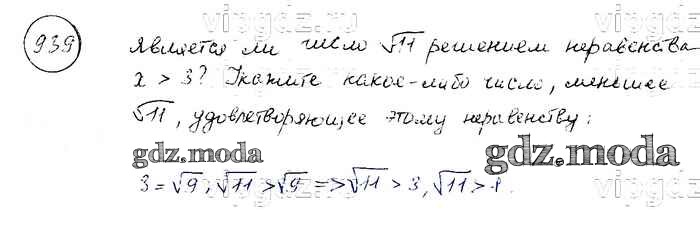 939
Является ли число √11 решением неравенства
x > 3? Укажите какое-либо число, меньшее
√11, удовлетворяющее этому неравенству:
gdz.moda
gdz.moda
3 = √9; √11 > √9 => √11 > 3, √11 > 1.